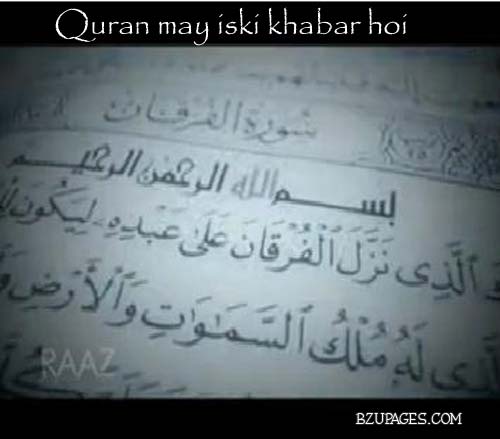 Quran may iski khabar hoi
سُورَةُ الفُرْقَان
بسم الله الرحمن الرحيم
ٱلَّذِى نَزَّلَ ٱلْفُرْقَانَ عَلَىٰ عَبْدِهِۦ لِيَكُونَ
لَهُۥ مُلْكُ ٱلسَّمَٰوَٰتِ وَٱلْأَرْضِ
RAAZ
BZUPAGES.COM